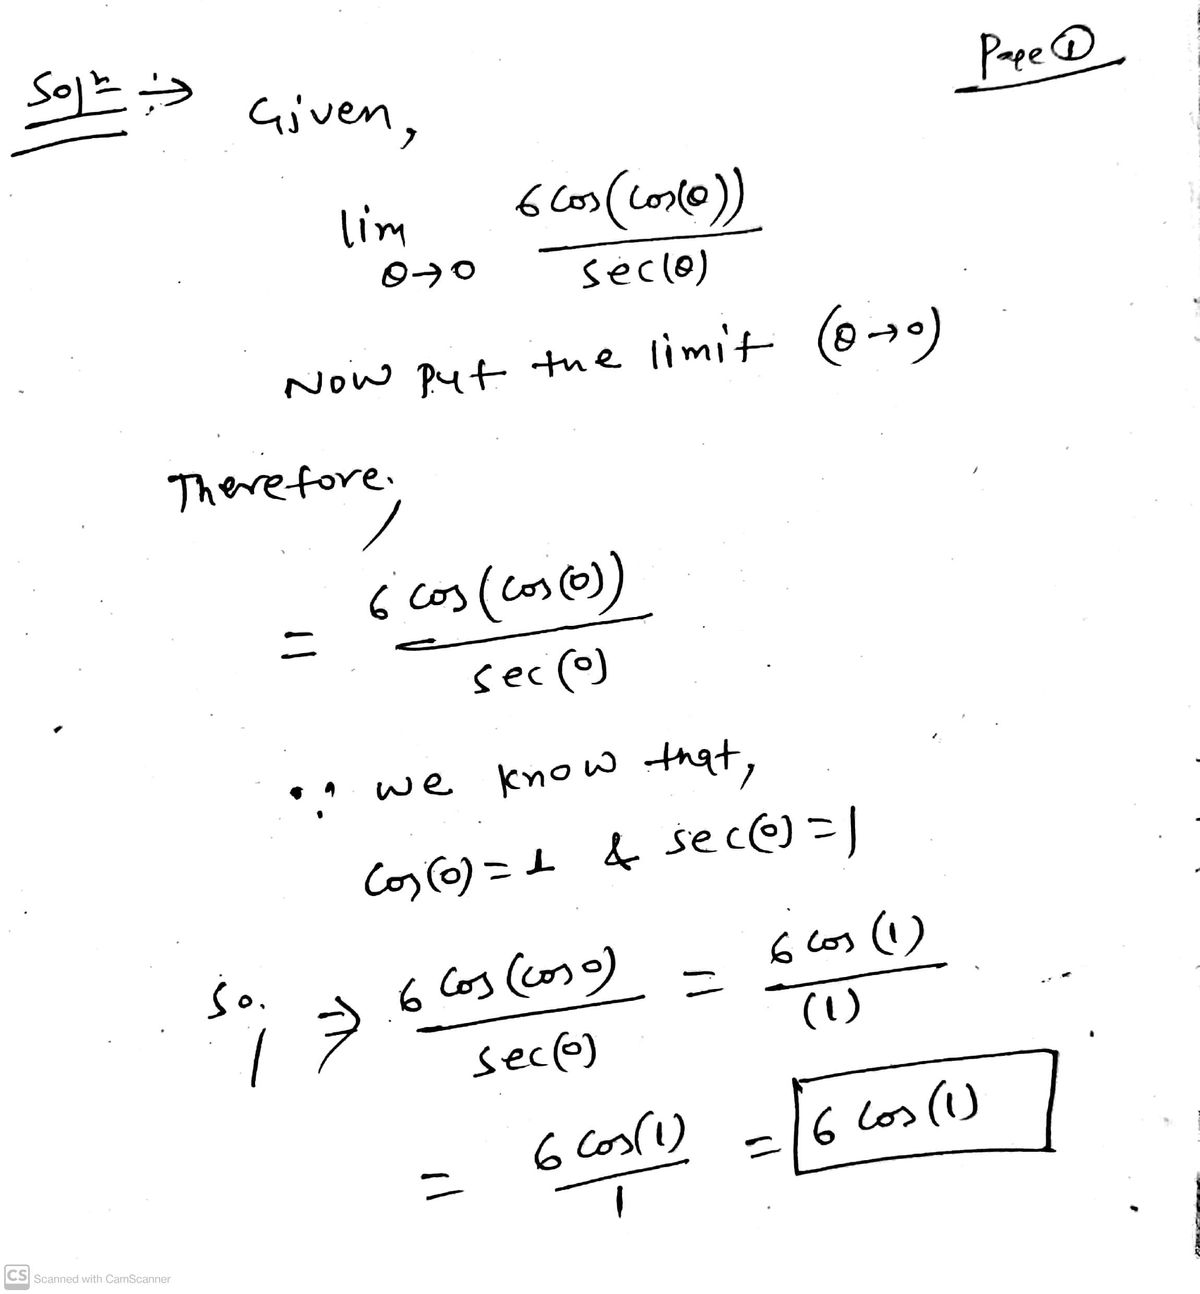 Page ①
Solⁿ ⇒ Given,
lim θ→0 6 cos(cos(θ)) / sec(θ)
Now put the limit (θ→0)
Therefore,
= 6 cos(cos(0)) / sec(0)
∵ we know that,
cos(0) = 1 & sec(0) = 1
So, ⇒ 6 cos(cos 0) / sec(0) = 6 cos(1) / (1)
= 6 cos(1) / 1 = 6 cos(1)
CS Scanned with CamScanner